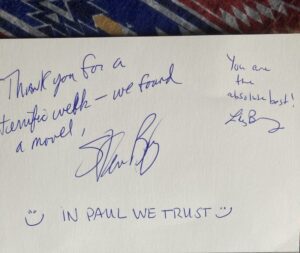 Thank you for a
terrific week – we found
a novel,
You are
the
absolute best!
IN PAUL WE TRUST